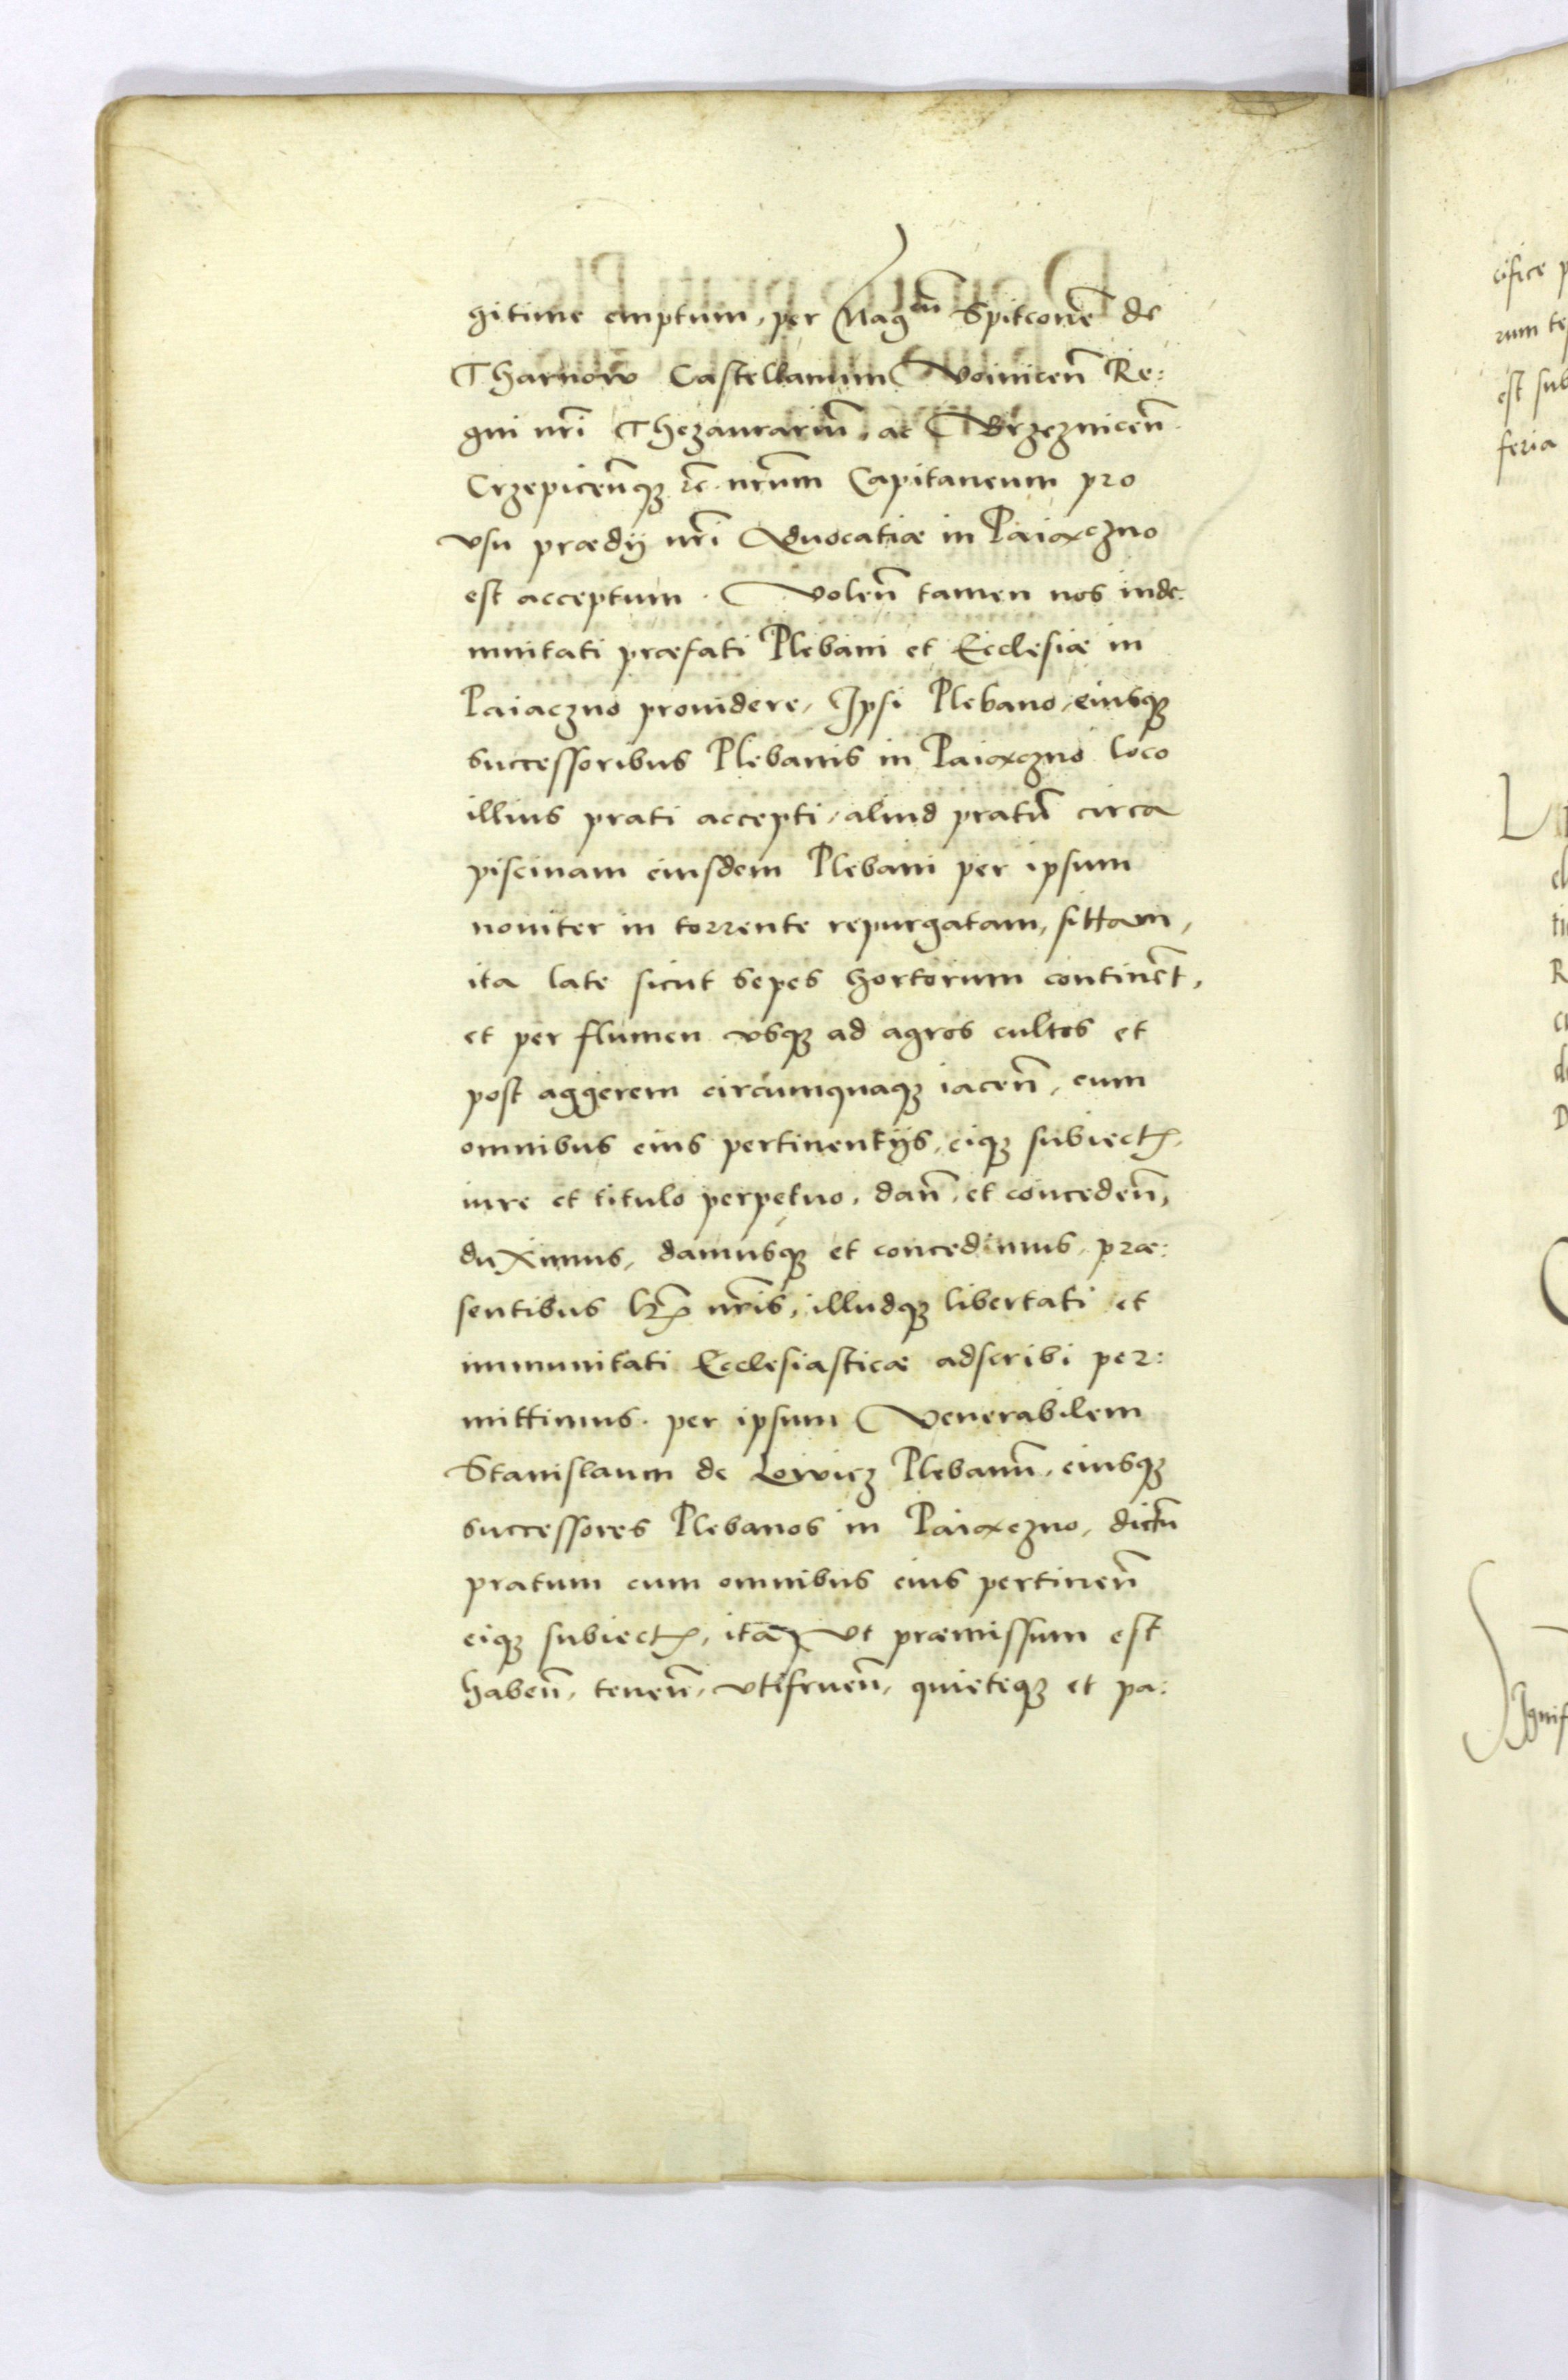 gitime emptum, per Mag^cum Spitconē de
Tharnow Castellanum Voinicen̄ Re:
gni nr̄i Thezaurariū, ac Brzeznicen̄
Crzepicen̄q₃ etc̄. nr̄um Capitaneum pro
vsu prædij nr̄i Aduocatiæ in Paiæczno
est acceptum. Volen̄ tamen nos inde:
mnitati præfati Plebani et Ecclesiæ in
Paiaczno prouidere, Ipsi Plebano, eiusq₃
successoribus Plebanis in Paiæczno loco
illius prati accepti, aliud pratū circa
piscinam eiusdem Plebani per ipsum
nouiter in torrente repurgatam, sittam,
ita late sicut sepes hortorum continēt,
et per flumen vsq₃ ad agros cultos et
post aggerem circumquaq₃ iacen̄, cum
omnibus eius pertinentijs, eiq₃ subiectꝭ,
iure et titulo perpetuo, dan̄, et conceden̄,
duximus, damusq₃ et concedimus, præ:
sentibus lr̄ꝭ nr̄is, illudq₃ libertati et
immunitati Ecclesiasticæ adscribi per:
mittimus. per ipsum Venerabilem
Stanislaum de Lowicz Plebanū, eiusq₃
successores Plebanos in Paiæczno, dictū
pratum cum omnibus eius pertinen̄
eiq₃ subiectꝭ, ita, vt præmissum est
haben̄, tenen̄, vtifruen̄, quieteq₃ et pa: